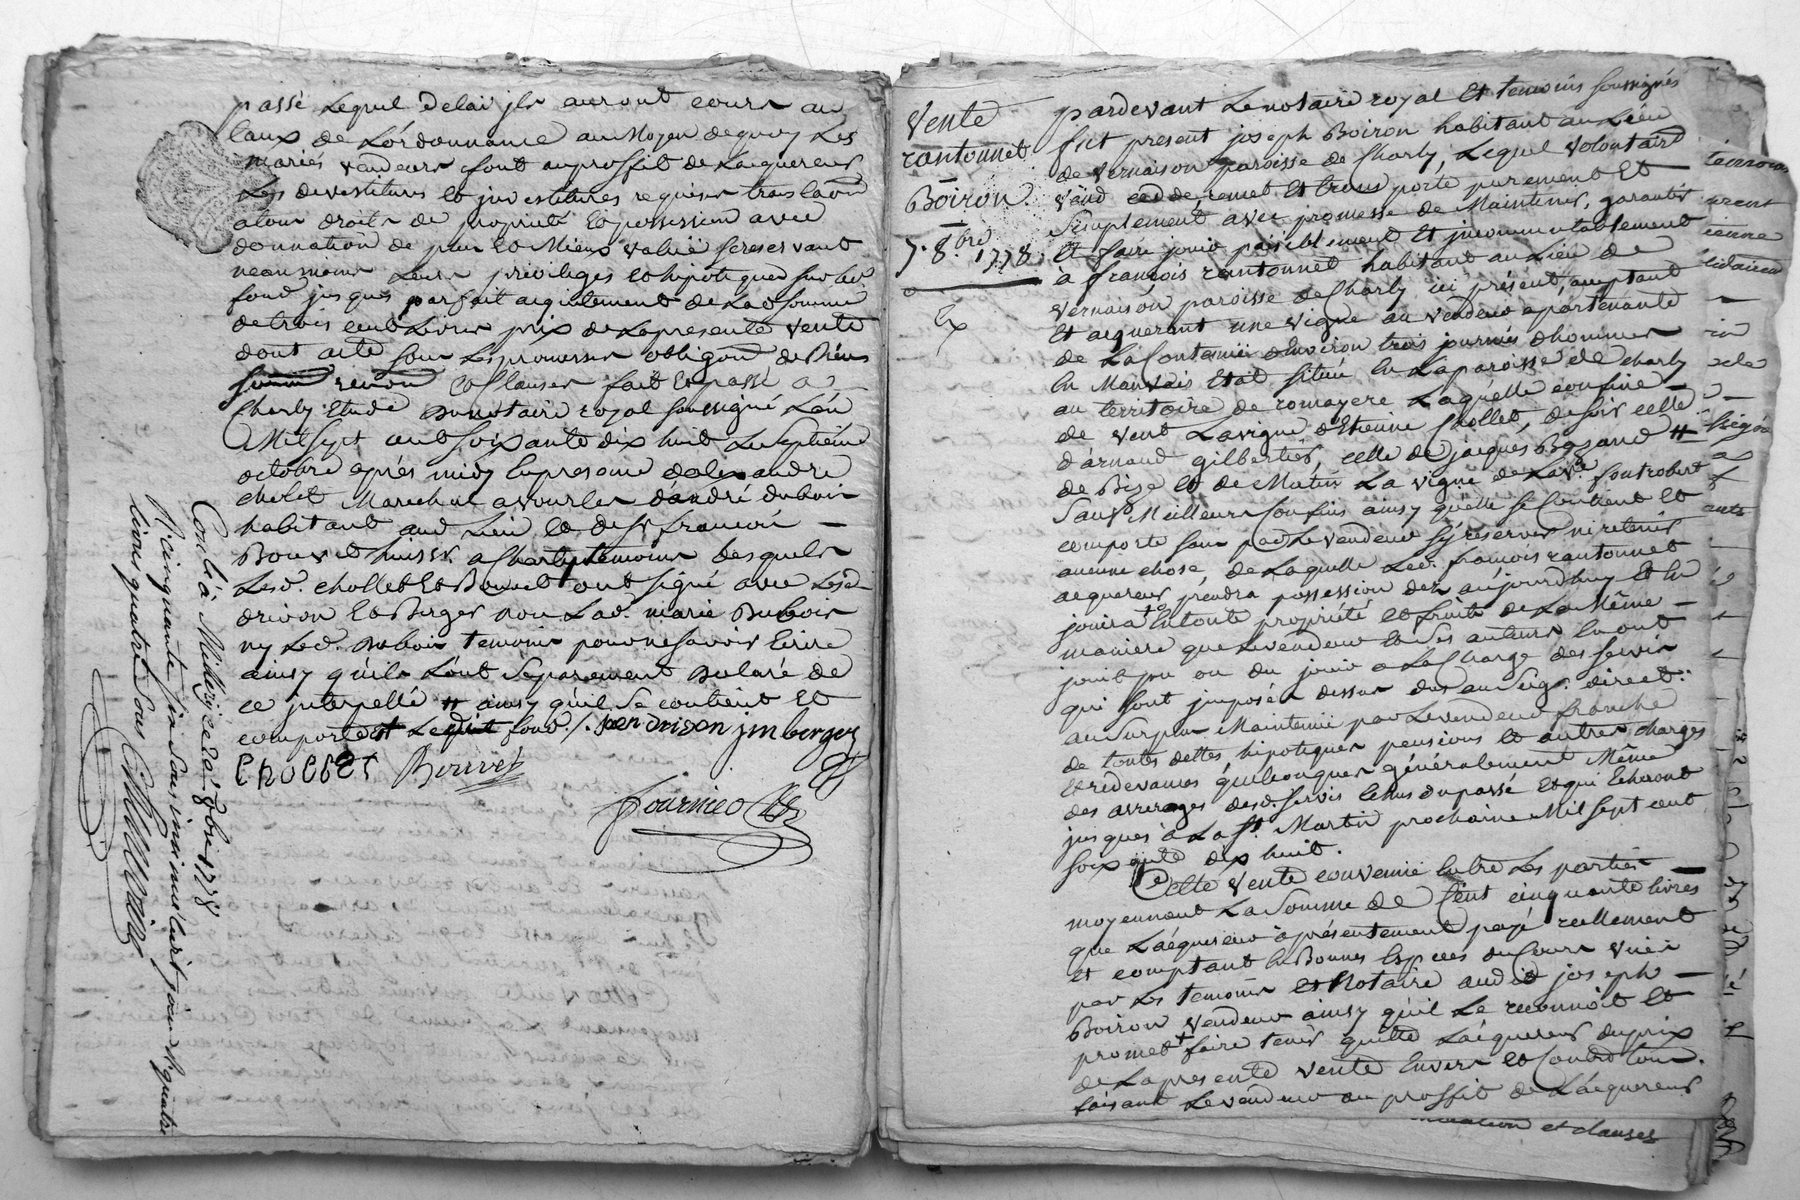 passé Lequel delai jls auront cours au
taux de L'ordonnance au Moyen dequoy Les
mariés vendeurs font auproffit de Lacquereur
Les devestitures et jnvestitures requises translaôn
atous droits de propriété et possession avec
donnation de plus et Mieux value se reservant
neanmoins Leurs privileges et hipoteques sur led.
fond jusques parfait acquitement de La Somme
de trois cent Livres prix de Lapresente vente
dont acte sous Les promesses obligôns de Biens
renôn et Clauses fait et passé a
Charly Etude du notaire royal soussigné Lán
Mil Sept cent soixante dix huit Le Septième
octobre après midy En presence
cholet Marechal a vourles d'andré duboix
habitant aud. Lieu et de Sr francois
Bouvet huissr. a Charly temoins Lesquels
Led. chollet Et Bouvet ont signé avec Lesd.
drivon Et Berger non Lad. marie Dubois
ny Led. dubois temoins pour ne savoir Ecrire
ainsy quils L'ont Separement declaré de
ce jnterpellé # ainsy qu'il Se contient et
comporte Ledit fond /. drivon jm berger
ChoLLET Bouvet
fournier
Con.lé à Millery Le 20 8bre 1778
livres quatre sous
Vente
rantonnet
Boiron.
7. 8.bre 1778.
pardevant Le notaire royal Et temoins soussignés
fut present joseph Boiron habitant au Lieu
de vernaison paroisse de Charly, Lequel volontairt
vend cedde, remet Et transporte purement Et
Simplement avec promesse de Maintenir, garantir
Et faire jouir paisiblement Et jncommutablement
à françois rantonnet habitant au Lieu de
vernaison paroisse de Charly ici présent, acceptant
Et acquerant une vigne au vendeur apartenante
de La Contenüe d'Environ trois journés d'hommes
En Mauvais Etat située En La paroisse de charly
au territoire de romayere Laquelle confine
de vent La vigne d'Etienne Chollet, de soir celle
d'arnaud gilbertier, celle de jacques Bozand #
de Bize et de Matin La vigne de La ve. fontrobert
Sauf Meilleurs Confins ainsy quelle se Contient et
comporte sans par Le vendeur s'y réserver ni retenir
aucune chose, de Laquelle Led. francois rantonnet
acquereur prendra possession dez aujourdhuy Et En
jouira En toute propriété et fruits de La Même
maniere que Le vendeur Et Ses auteurs En ont
jouit pu ou du jouir a La Charge des servis
qui sont jmposés dessus dus au Seigr. direct.
au Surplus Maintenüe par Le vendeur franche
de toutes dettes, hipoteques pensions et autres charges
Et redevances quelconques généralement Même
des arrerages desd. servis Echus du passé Et qui Echeront
jusques a La St. Martin prochaine Mil sept cent
soixante dix huit.
Cette vente convenüe Entre Les parties
moyennant La Somme de Cent cinquante livres
que L'acquereur à présentement payé reellement
Et comptant En Bonnes Especes du Cours vüe
par Les temoins et Notaire audit joseph
Boiron vendeur ainsy qu'il Le reconnoit Et
promet faire tenir quitte L'acquereur du prix
de La presente vente Envers et Contre tous.
faisant Le vendeur au proffit de L'acquereur
et clauses